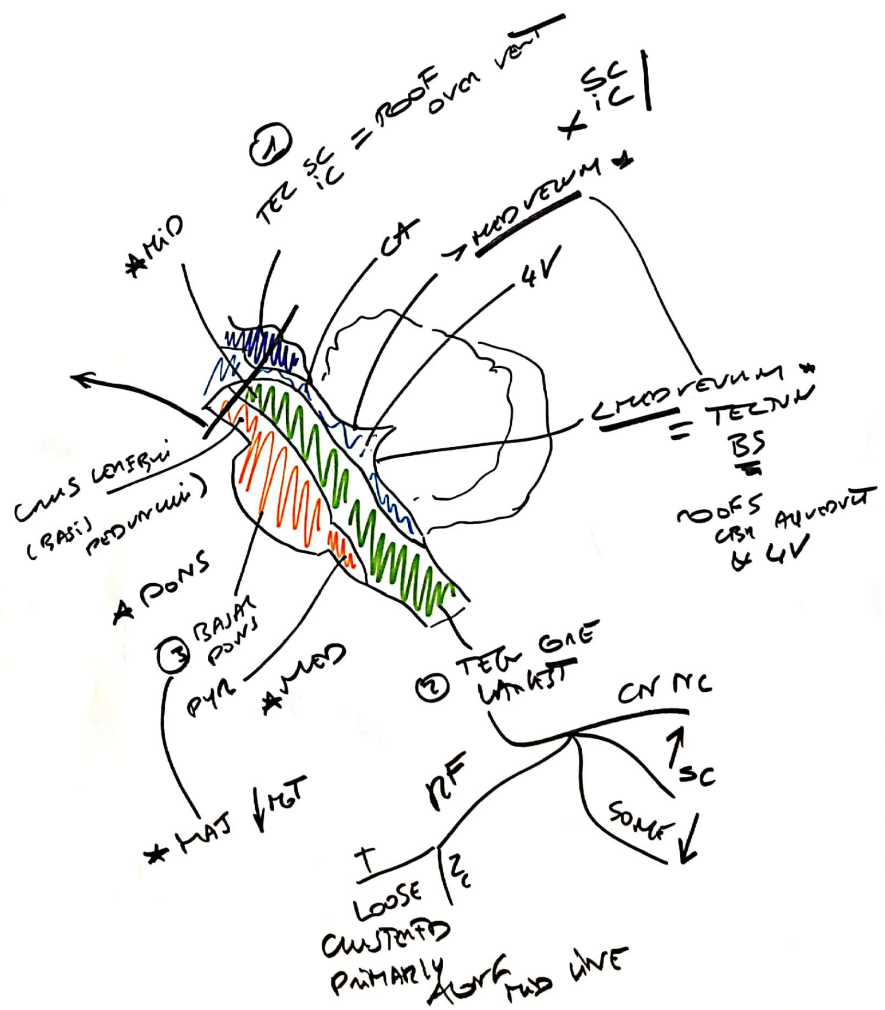 1
TEC SC = ROOF
IC OVER VENT
SC
+ IC
* MID
CA
> MED VELUM *
4V
< MED VELUM *
= TECTUM
BS
ROOFS
CBR AQUEDUCT
& 4V
CRUS CEREBRI
(BASIS
PEDUNCULI)
* PONS
3 BASAL
PONS
PYR
* MED
2 TEG CORE
LARGEST
CN NC
↑
SC
SOME ↓
RF
* MAJ ↓ MOT
LOOSE
CLUSTERED
PRIMARLY
ALONG MID LINE